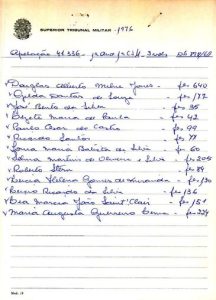 SUPERIOR TRIBUNAL MILITAR - 1976
Apelação 41.336 -
Douglas Alberto Milne Jones - fls 640
Gildo Dantas de Souza - fls 172
José Bento da Silva - fls 35
Bizete Maria de Paula - fls 42
Paulo Cesar de Castro - fls 99
Ricardo Santos - fls 77
Sonia Maria Batista da Silva - fls 60
Selma Martins de Oliveira e Silva - fls 205
Roberto Stern - fls 84
Lucia Helena Gomes de Miranda - fls 30
Benno Ricardo da Silva - fls 36
Eva Marcia João Saint'Clair - fls 51
Maria Augusta Guerreiro - fls 224
Mod. 18